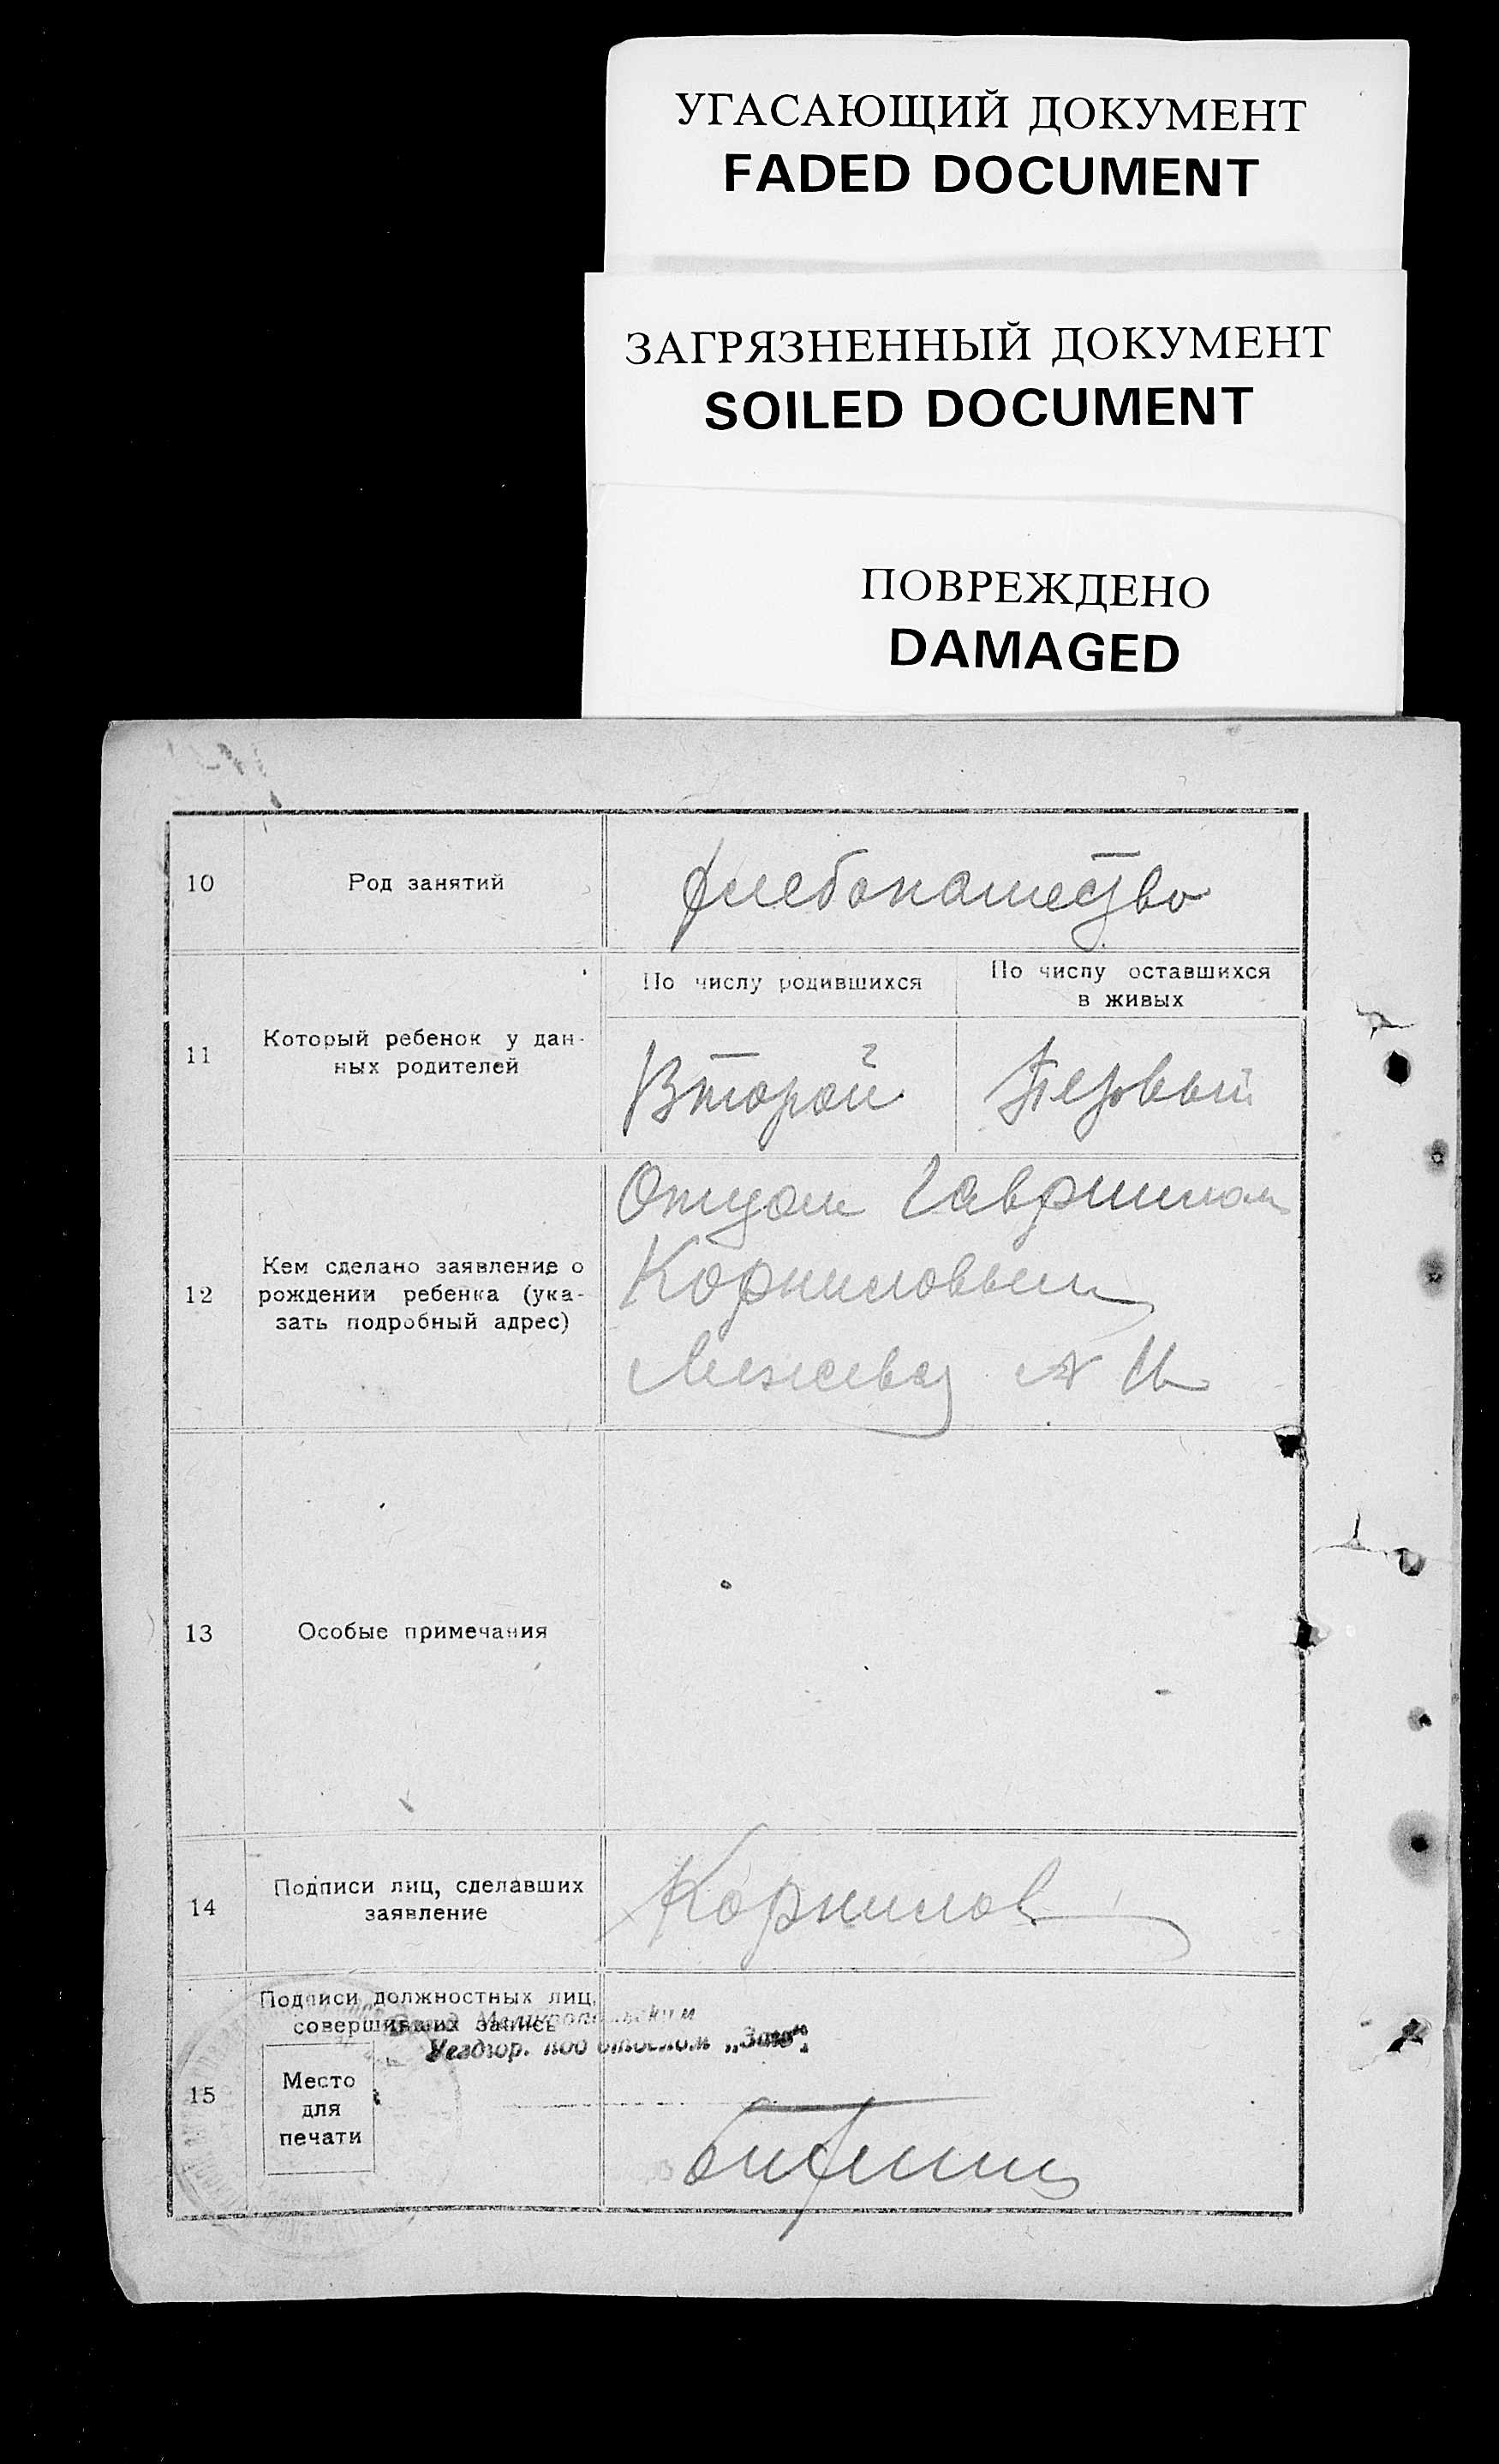 УГАСАЮЩИЙ ДОКУМЕНТ
FADED DOCUMENT
ЗАГРЯЗНЕННЫЙ ДОКУМЕНТ
SOILED DOCUMENT
ПОВРЕЖДЕНО
DAMAGED
10
Род занятий
хлебопашество
11
Который ребенок у дан-
ных родителей
По числу родившихся
По числу оставшихся
в живых
Второй
Первый
12
Кем сделано заявление о
рождении ребенка (ука-
зать подробный адрес)
Отцом Гавриилом
Корниловым
13
Особые примечания
14
Подписи лиц, сделавших
заявление
Корнилов
15
Подписи должностных лиц,
совершивших запись
Зав. Мелитопольским
Уездгор. под отделом „Загс“.
Место
для
печати